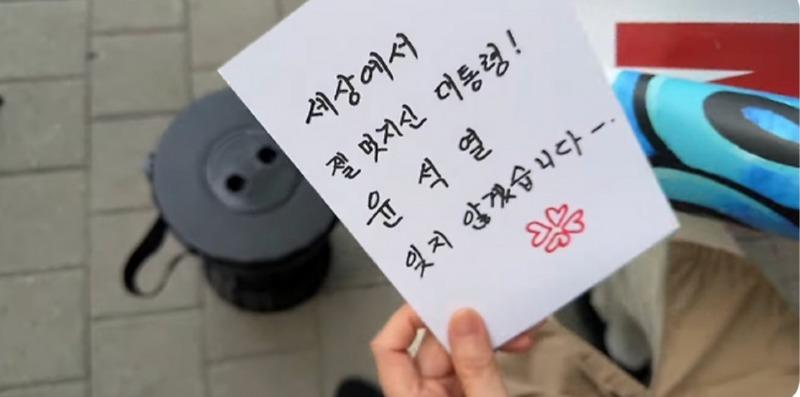 세상에서
젤 멋지신 대통령!
윤 석 열
잊지 않겠습니다ㅡ.